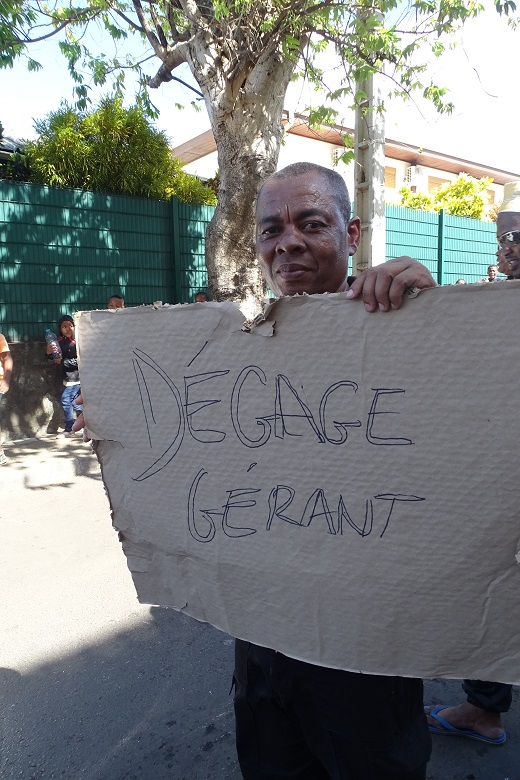 DÉGAGE
GÉRANT